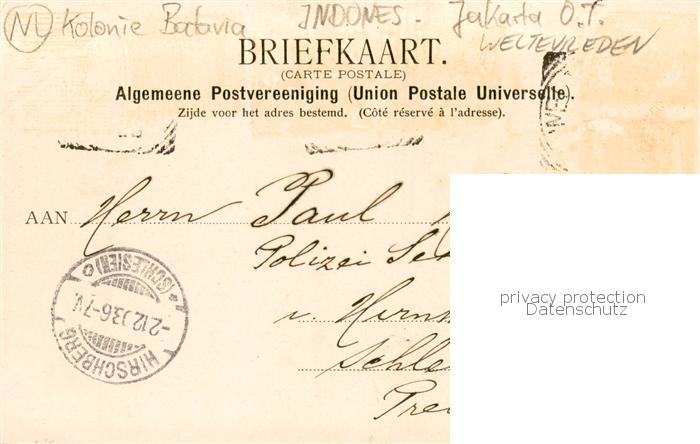 NL Kolonie Batavia INDONES. Jakarta O.T.
WELTEVREDEN
BRIEFKAART.
(CARTE POSTALE)
Algemeene Postvereeniging (Union Postale Universelle).
Zijde voor het adres bestemd. (Côté réservé à l'adresse).
AAN Herrn Paul
Polizei
i.
Schle
HIRSCHBERG
(SCHLESIEN)
privacy protection
Datenschutz